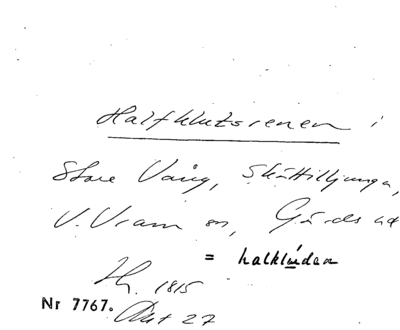 Halfklutsrenen i
Store Vång, Skättilljunga,
V. Vram sn, Gärds hd
= halklúdan
Hh. 1815
Nr 7767. Akt 27